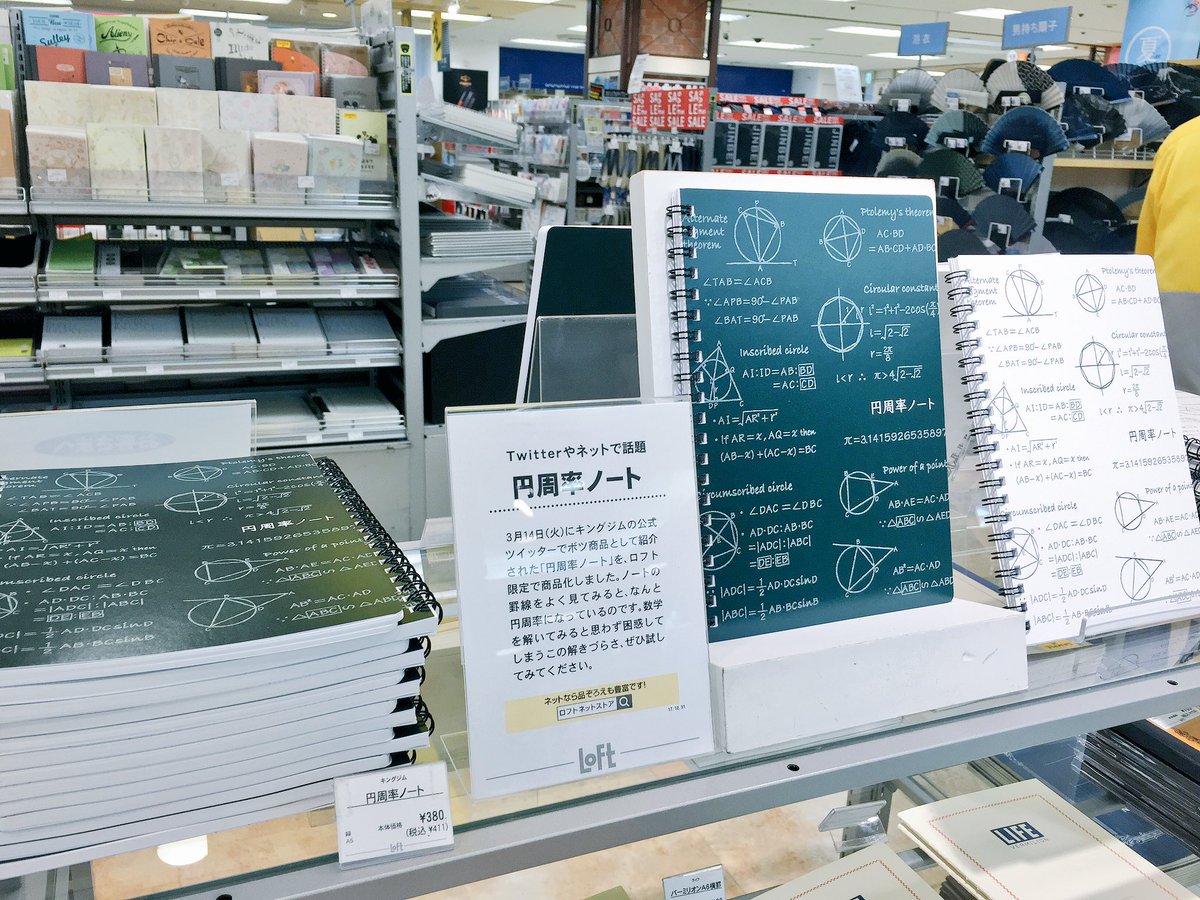 浴衣
男持ち扇子
夏
SALE
SALE
Twitterやネットで話題
円周率ノート
3月14日(火)にキングジムの公式
ツイッターでボツ商品として紹介
された「円周率ノート」を、ロフト
限定で商品化しました。ノートの
罫線をよく見てみると、なんと
円周率になっているのです。数学
を解いてみると思わず困惑して
しまうこの解きづらさ、ぜひ試し
てみてください。
ネットなら品ぞろえも豊富です!
ロフトネットストア
17.12.31
LOFT
キングジム
円周率ノート
¥380
本体価格
(税込 ¥411)
緑
A5
Loft
Alternate
segment
theorem
Ptolemy's theorem
AC·BD
=AB·CD+AD·BC
∠TAB=∠ACB
∵∠APB=90°-∠PAB
∠BAT=90°-∠PAB
Circular constant
l²=1²+1²-2cos(
l=√2-√2
r=2π/8
l<r ∴ π>4√2-√2
Inscribed circle
AI:ID=AB:BD
=AC:CD
・AI=√AR²+r²
・If AR=x, AQ=x then
(AB-x)+(AC-x)=BC
円周率ノート
π=3.1415926535897
Power of a point
AB·AE=AC·AD
∵△ABC∽△AED
circumscribed circle
・∠DAC=∠DBC
・AD·DC:AB·BC
=|ADC|:|ABC|
=DE:EB
|ADC|=1/2 AD·DCsinD
|ABC|=1/2 AB·BCsinB
AB²=AC·AD
∵△ABC∽△ABD
LIFE
VERMILION
バーミリオンA6横罫